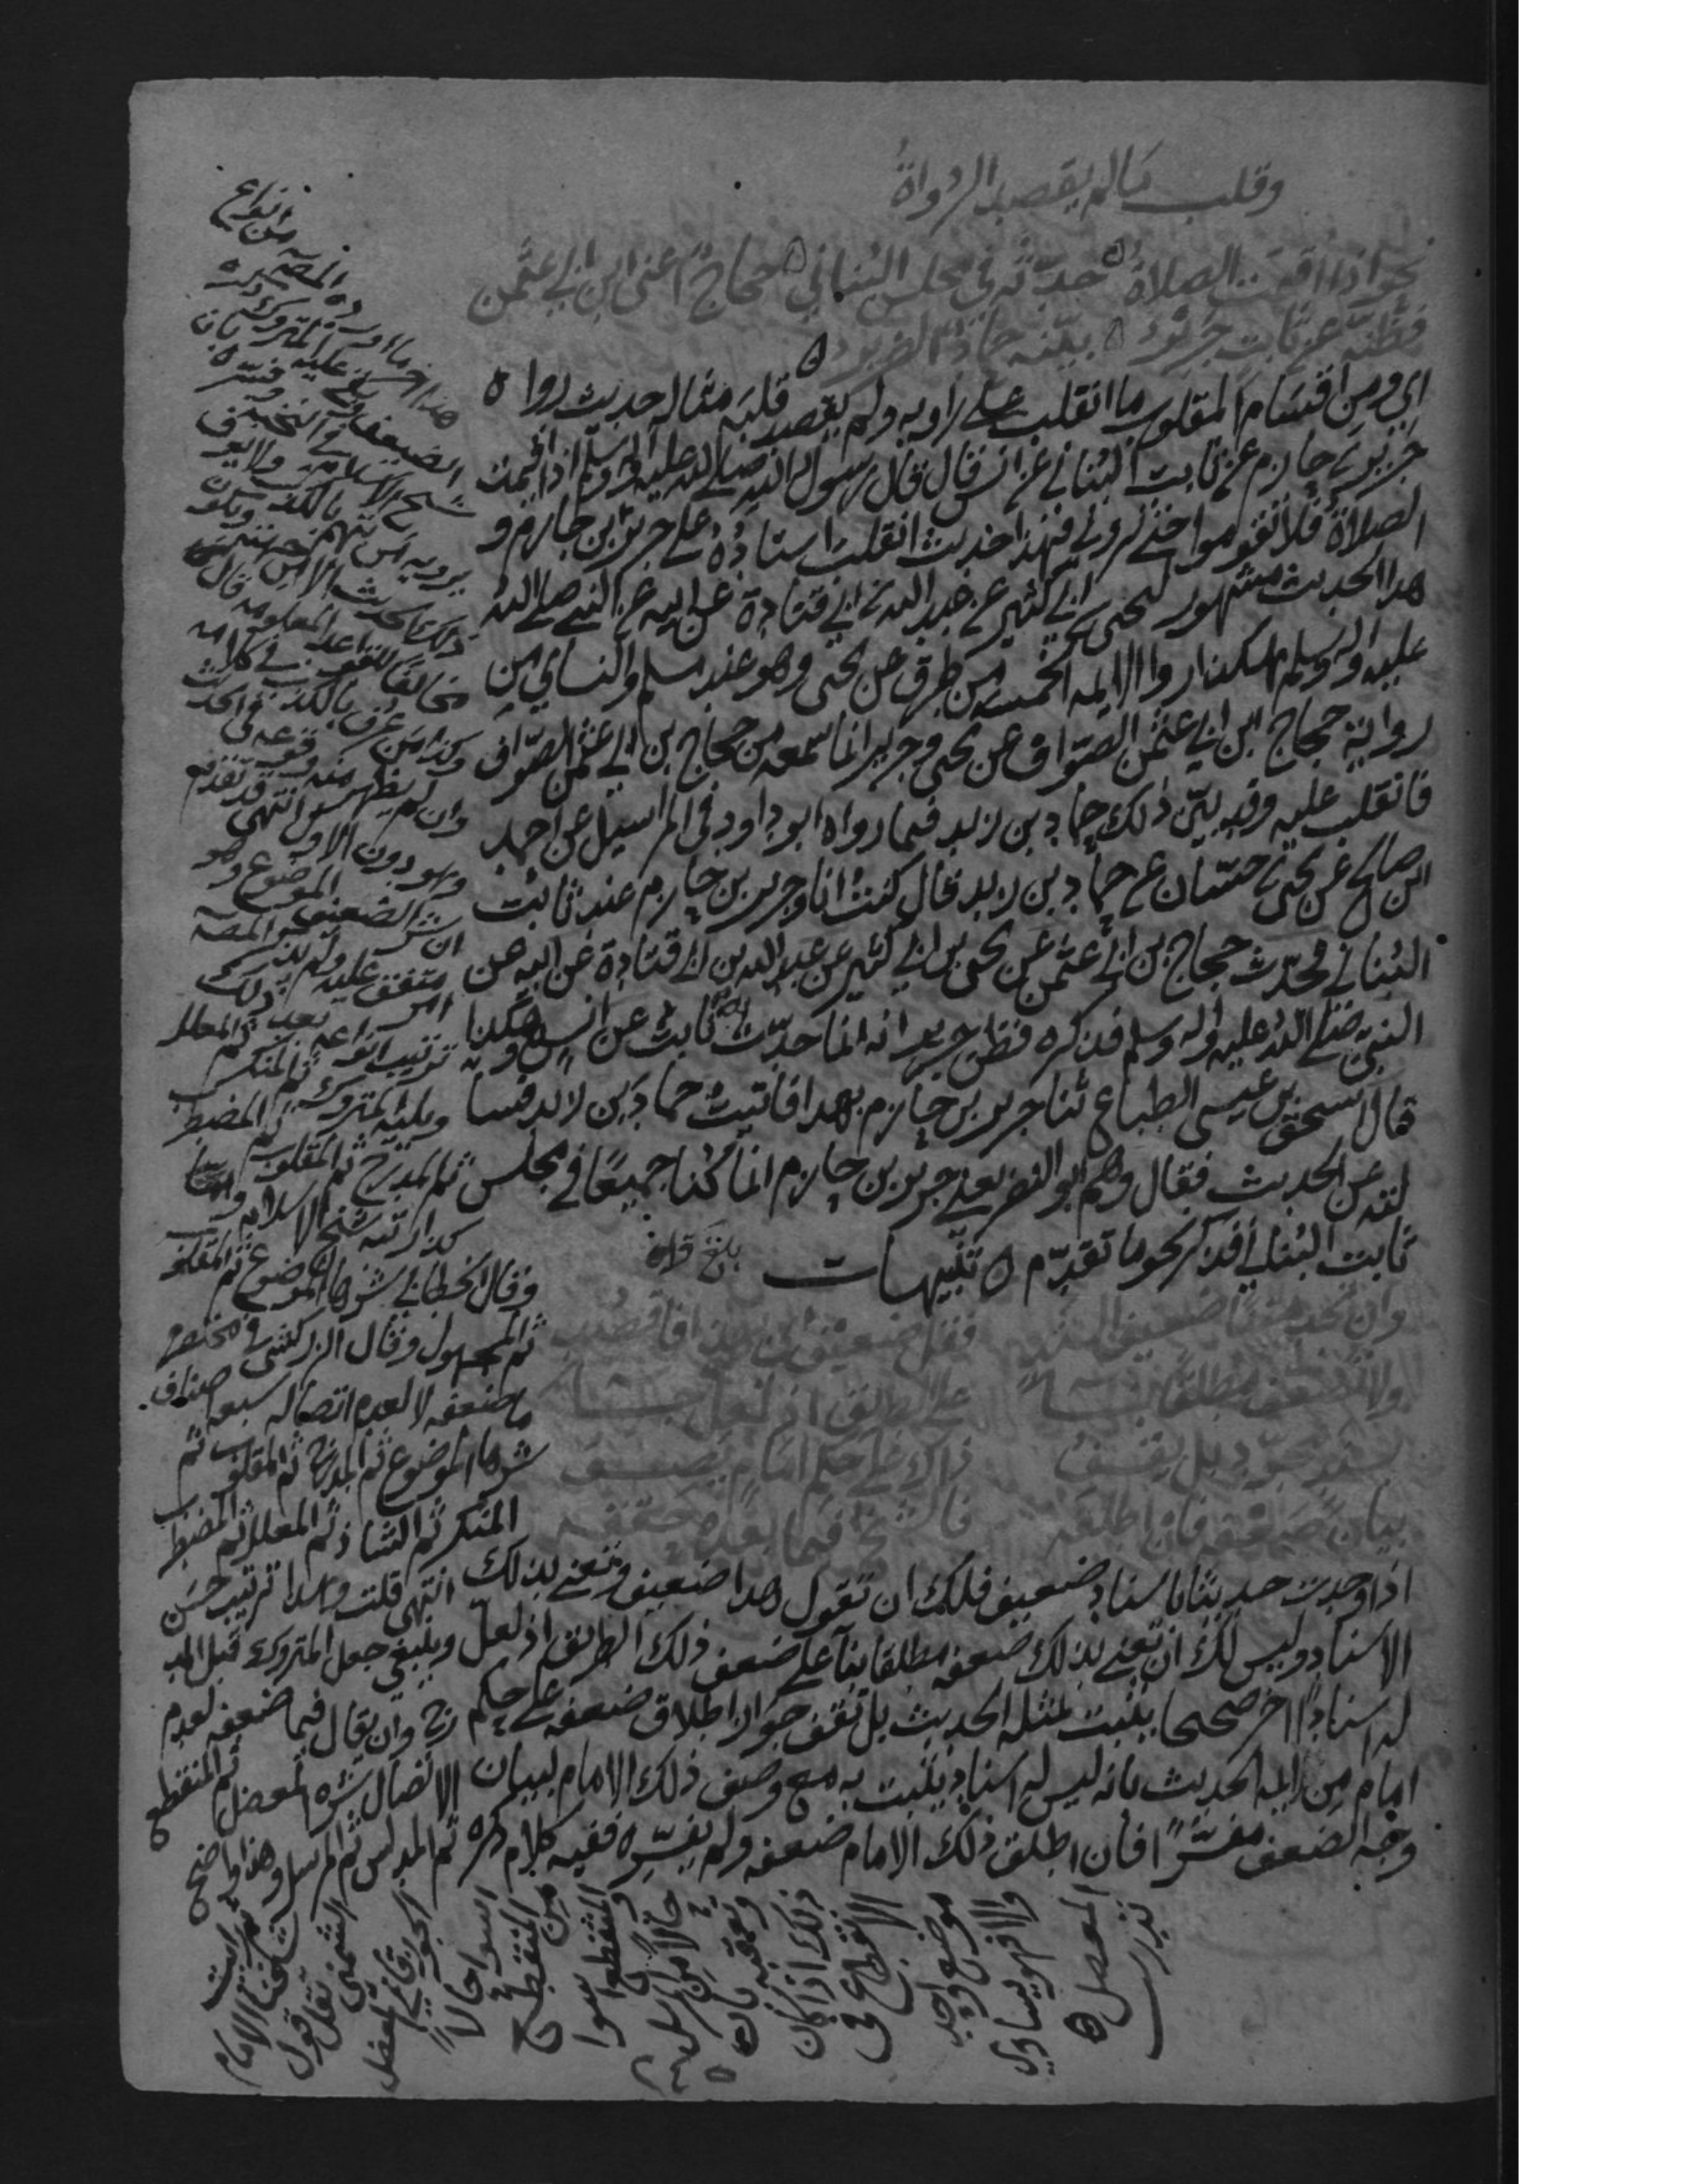 وقلب مالم يقصد الرواة
نحو اذا اقيمت الصلاة حدثه في مجلس البناني حجاج اعنى ابن ابي عثمن
فظنه عن ثابت جرير بينه حماد الضرير
اي ومن اقسام المقلوب ما انقلب على راويه ولم يقصد قلبه مثاله حديث رواه
جرير بن حازم عن ثابت البناني عن انس قال قال رسول الله صلى الله عليه وآله وسلم اذا اقيمت
الصلاة فلا تقوموا حتى تروني فهذا حديث انقلب اسناده على جرير بن حازم و
هذا الحديث مشهور ليحيى بن ابي كثير عن عبد الله بن ابي قتادة عن ابيه عن النبي صلى الله
عليه وآله وسلم هكذا رواه الايمه الخمسه من طرق عن يحيى وهو عند مسلم والنساي من
رواية حجاج ابن ابي عثمن الصواف عن يحيى وجرير انما سمعه من حجاج بن ابي عثمن الصواف
فانقلب عليه وقد بين ذلك حماد بن زيد فيما رواه ابو داود في المراسيل عن احمد
ابن صالح عن يحيى بن حسان عن حماد بن زيد قال كنت انا وجرير بن حازم عند ثابت
البناني فحدث حجاج بن ابي عثمن عن يحيى بن ابي كثير عن عبد الله بن ابي قتادة عن ابيه عن
النبي صلى الله عليه وآله وسلم فذكره فظن جرير انه انما حدث به ثابت عن انس وهكذا
قال اسحق بن عيسى الطباع ثنا جرير بن حازم بهذا فاتيت حماد بن زيد فسا
لته عن الحديث فقال وهم ابو النضر يعني جرير بن حازم انما كنا جميعا في مجلس
ثابت البناني فذكر نحو ما تقدم ه تنبيهات
بلغ قراة
وان تجد متنا ضعيف السند فقل ضعيف اي بهذا فاقصد
ولا تضعف مطلقا بناء على الطريق اذ لعل جاء
بسند مجود بل يقف ذاك على حكم امام يصف
بيان ضعفه فان اطلقه فالشيخ فيما بعده حققه
اذا وجدت حديثا باسناد ضعيف فلك ان تقول هذا ضعيف وتعني بذلك
الاسناد وليس لك ان تعني بذلك ضعفه مطلقا بنآ على ضعف ذلك الطريق اذ لعل
له اسنادا اخر صحيحا يثبت بمثله الحديث بل تقف جواز اطلاق ضعفه على حكم
امام من ايمه الحديث بانه ليس له اسناد يثبت به مع وصف ذلك الامام لبيان
وجه الضعف مفسرا فان اطلق ذلك الامام ضعفه ولم يفسره ففيه كلام ذكره
هذا اخر ما اورده المصـ من انواع
الضعيف وبقي عليه المتروك ذكره
شيخ الاسلام في النخبه وفسره بان
يرويه من يتهم بالكذب ولا يعرف
ذلك الحديث الا من جهته ويكون
مخالفا للقواعد المعلومه قال
وكذا من عرف بالكذب في كلامه
وان لم يظهر منه وقوعه في الحديث
وهو دون الاول انتهى وقد تقدم
ان شر الضعيف الموضوع وهو
متفق عليه ولم يذكر المصـ
ترتيب انواعه بعد ذلك
ويليه المتروك ثم المنكر ثم المعلل
ثم المدرج ثم المقلوب ثم المضطرب
كذا رتبه شيخ الاسلام
وقال الخطابي شرها الموضوع ثم المقلوب
ثم المجهول وقال الزركشي في مختصره
ما ضعفه لا لعدم اتصاله سبعه اصناف
شرها الموضوع ثم المدرج ثم المقلوب ثم
المنكر ثم الشاذ ثم المعلل ثم المضطرب
انتهى قلت وهذا ترتيب حسن
وينبغي جعل المتروك قبل المد
رج وان يقال فيما ضعفه لعدم
الاتصال شره المعضل ثم المنقطع
ثم المدلس ثم المرسل وهذا واضح
ثم رايت
شيخنا الامام
الشمني نقل قول
الجوزقاني المعضل
اسوا حالا
من المنقطع
والمنقطع اسوا
حالا من المرسل
وتعقبه بان
ذلك اذا كان
الانقطاع في
موضع واحد
والا فهو يساوي
المعضل ه